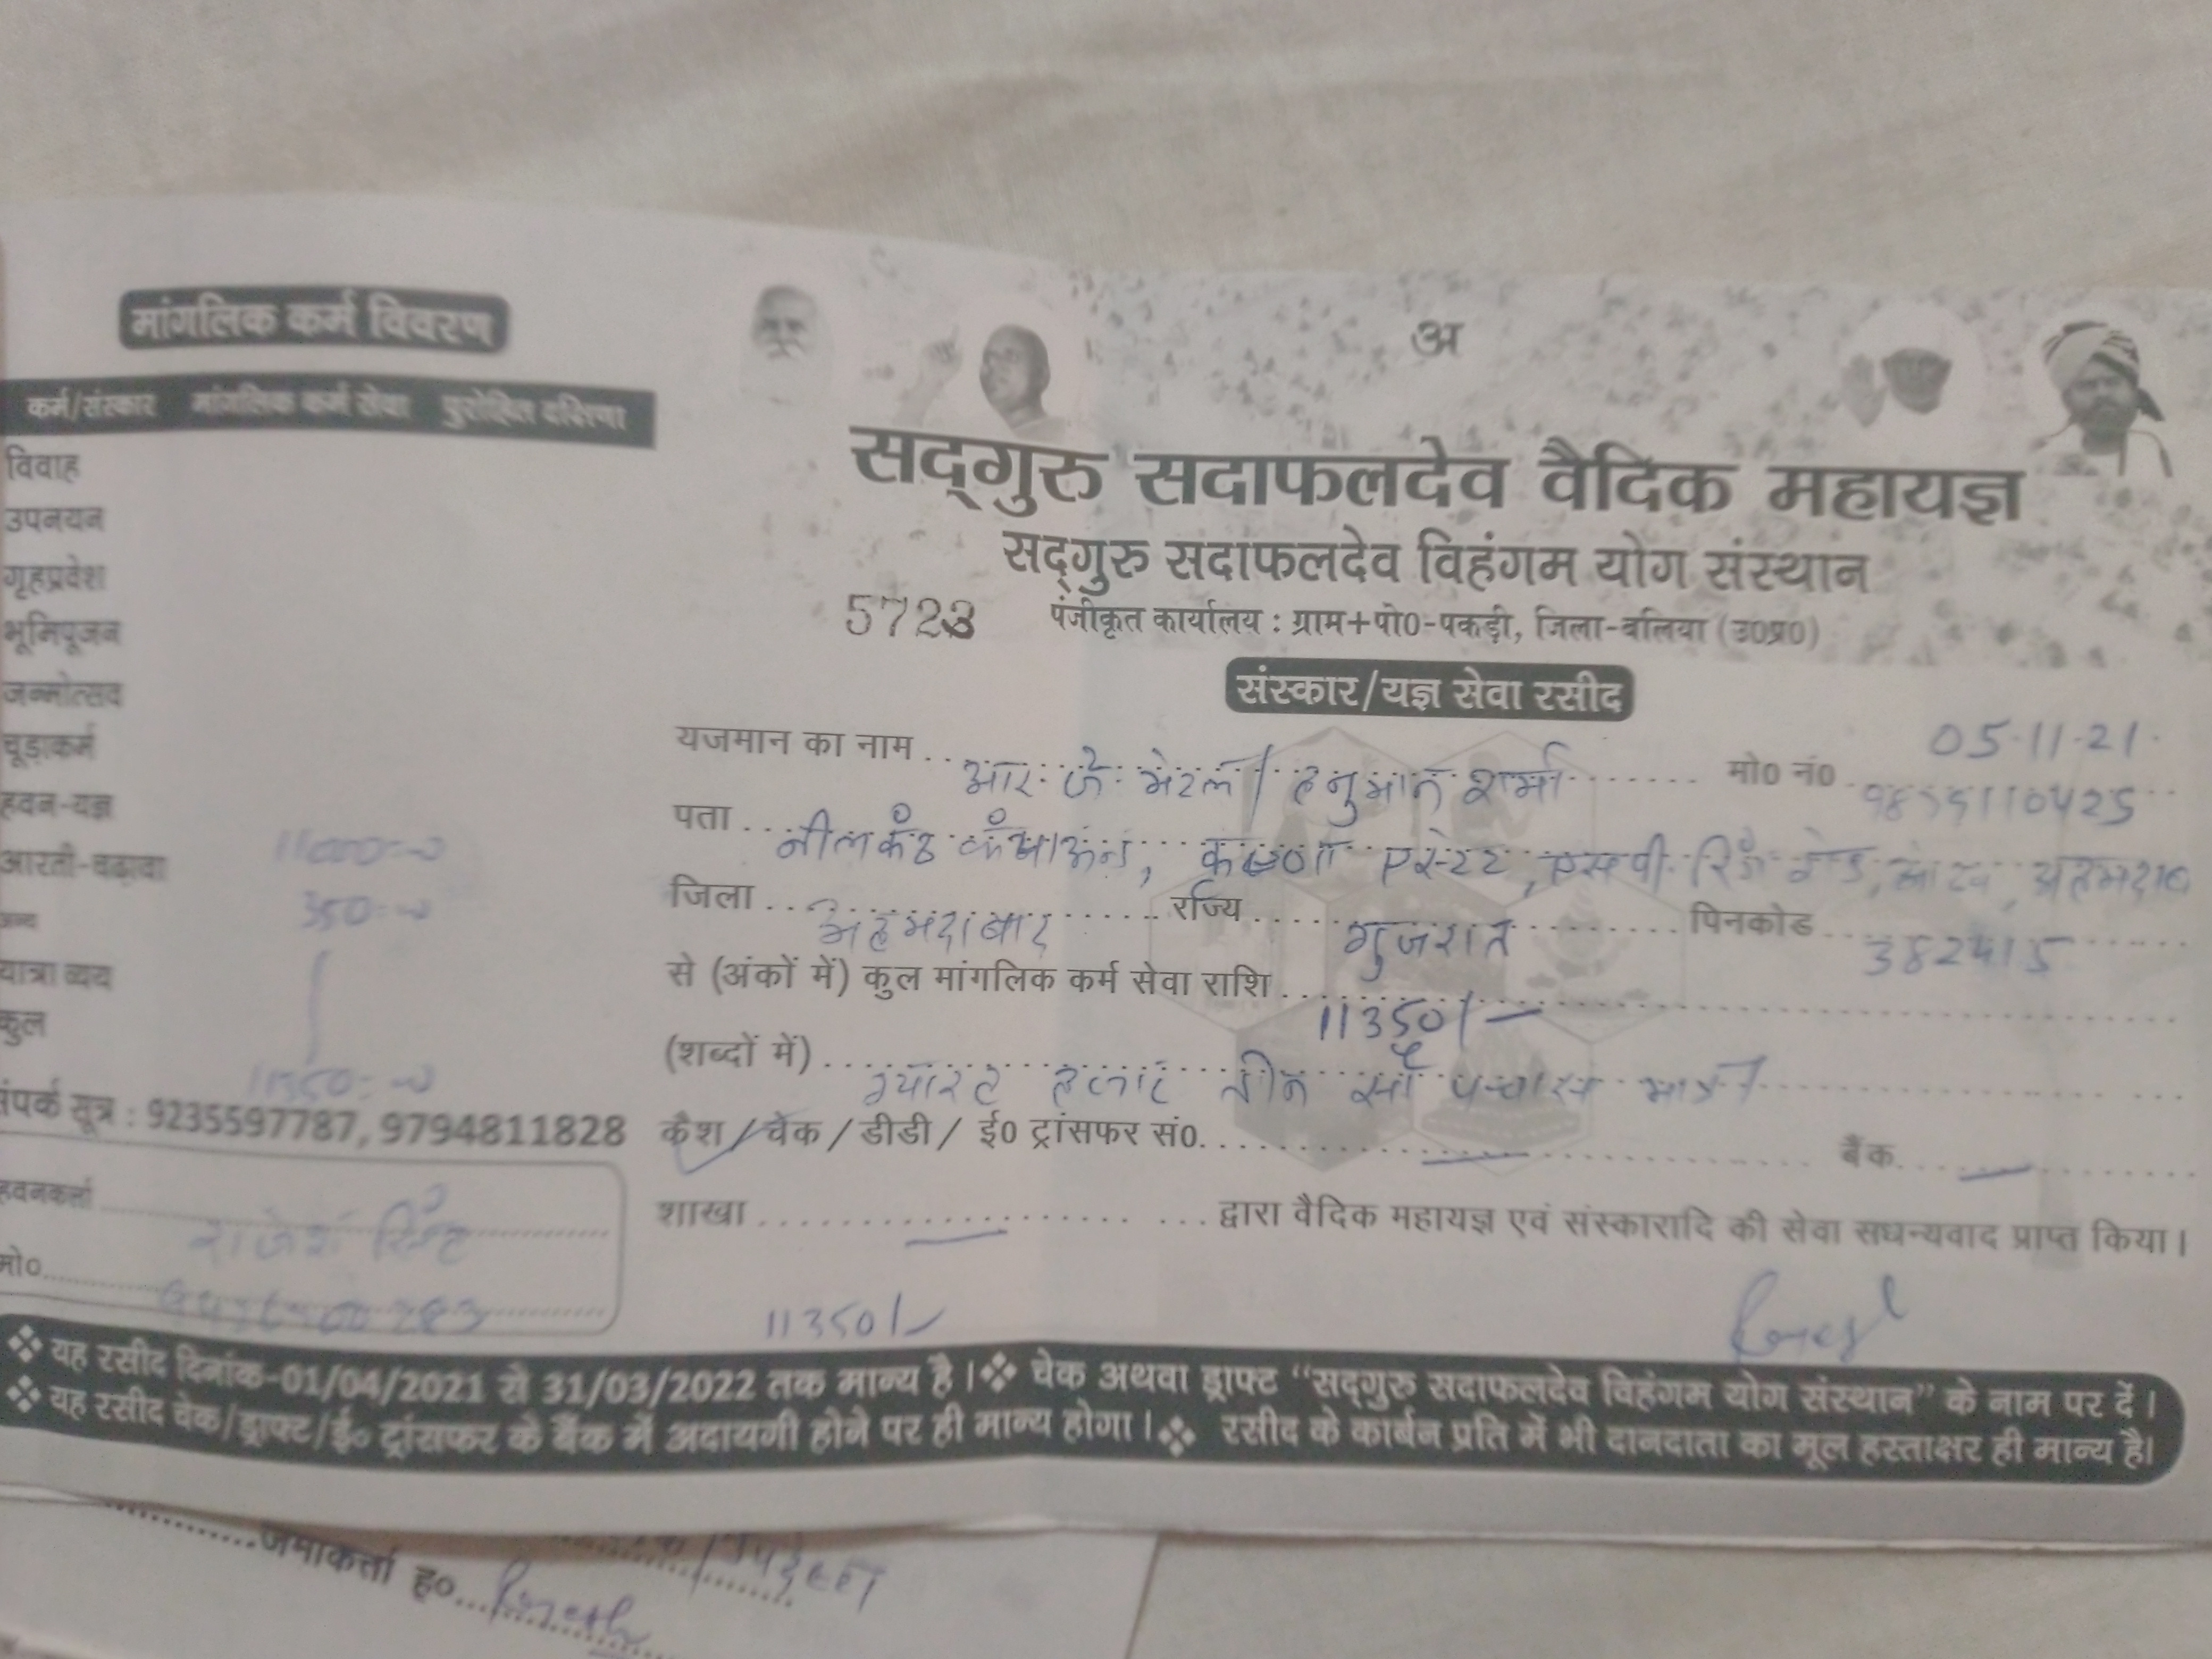 मांगलिक कर्म विवरण
कर्म/संस्कार मांगलिक कर्म सेवा पुरोहित दक्षिणा
विवाह
उपनयन
गृहप्रवेश
भूमिपूजन
जन्मोत्सव
चूड़ाकर्म
हवन-यज्ञ
11000=00
आरती-चढ़ावा
350=00
अन्य
यात्रा व्यय
कुल
11350=00
संपर्क सूत्र : 9235597787, 9794811828
हवनकर्ता
राजेश सिंह
मो०
अ
सद्गुरु सदाफलदेव वैदिक महायज्ञ
सद्गुरु सदाफलदेव विहंगम योग संस्थान
5723 पंजीकृत कार्यालय : ग्राम+पो0-पकड़ी, जिला-बलिया (उ0प्र0)
संस्कार/यज्ञ सेवा रसीद
05-11-21
यजमान का नाम .. आर. जे. मेटल / हनुमान शर्मा मो0 नं0
पता .. नीलकंठ एस्टेट, एसपी रिंग रोड, अहमदाबाद
जिला ... अहमदाबाद राज्य गुजरात पिनकोड 382415
से (अंकों में) कुल मांगलिक कर्म सेवा राशि 11350/-
(शब्दों में) ग्यारह हजार तीन सौ पचास मात्र
कैश / चेक / डीडी / ई0 ट्रांसफर सं0. — बैंक —
शाखा — द्वारा वैदिक महायज्ञ एवं संस्कारादि की सेवा सधन्यवाद प्राप्त किया।
11350/-
❖ यह रसीद दिनांक-01/04/2021 से 31/03/2022 तक मान्य है।❖ चेक अथवा ड्राफ्ट “सद्गुरु सदाफलदेव विहंगम योग संस्थान” के नाम पर दें।
❖ यह रसीद चेक/ड्राफ्ट/ई० ट्रांसफर के बैंक में अदायगी होने पर ही मान्य होगा।❖ रसीद के कार्बन प्रति में भी दानदाता का मूल हस्ताक्षर ही मान्य है।
जमाकर्त्ता ह०